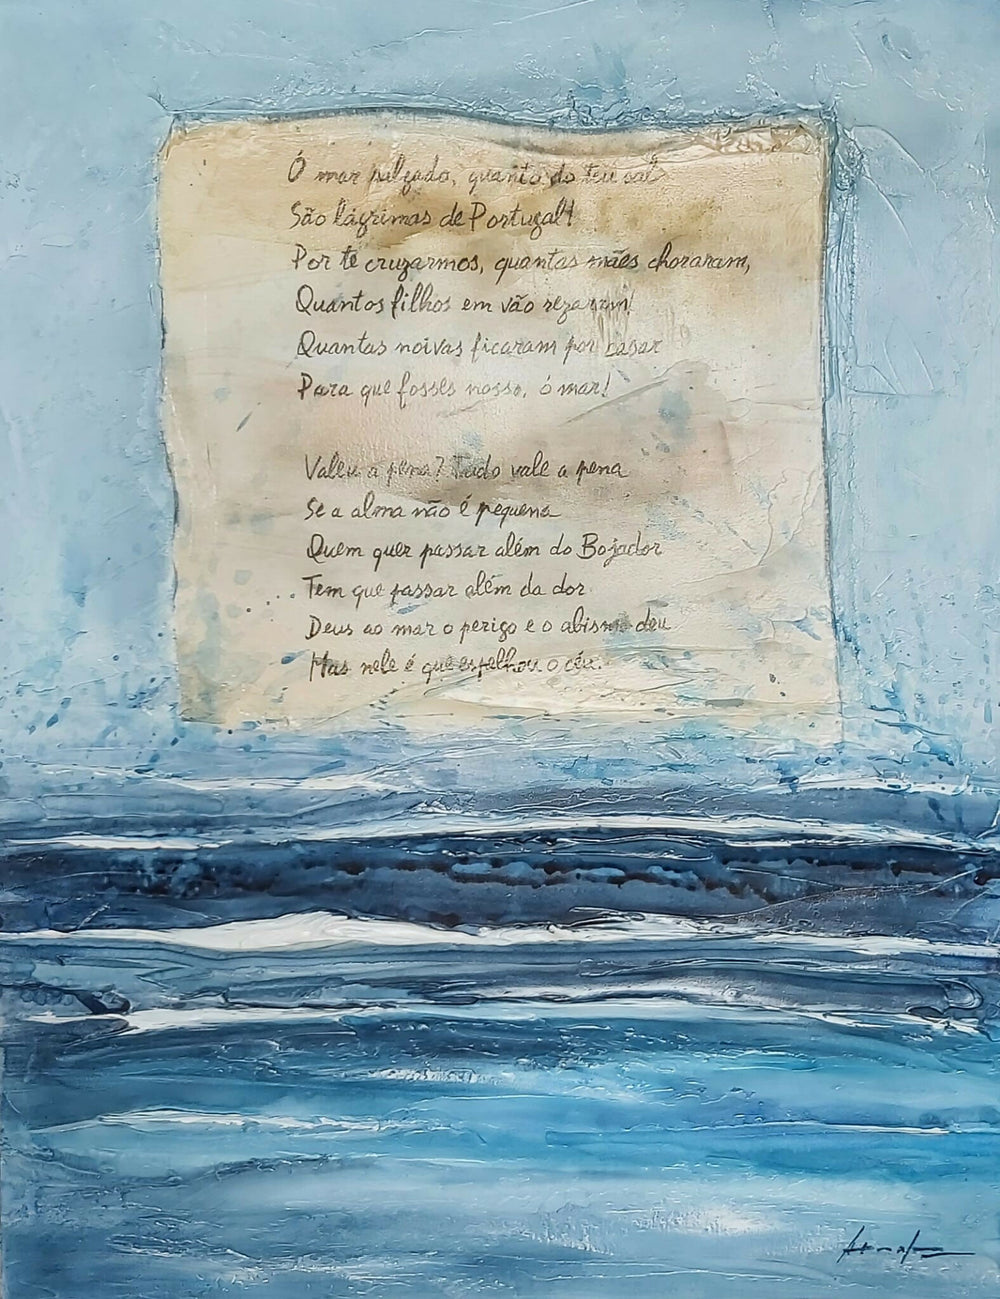 Ó mar salgado, quanto do teu sal
São lágrimas de Portugal!
Por te cruzarmos, quantas mães choraram,
Quantos filhos em vão rezaram!
Quantas noivas ficaram por casar
Para que fosses nosso, ó mar!
Valeu a pena? Tudo vale a pena
Se a alma não é pequena
Quem quer passar além do Bojador
Tem que passar além da dor
Deus ao mar o perigo e o abismo deu
Mas nele é que espelhou o céu.